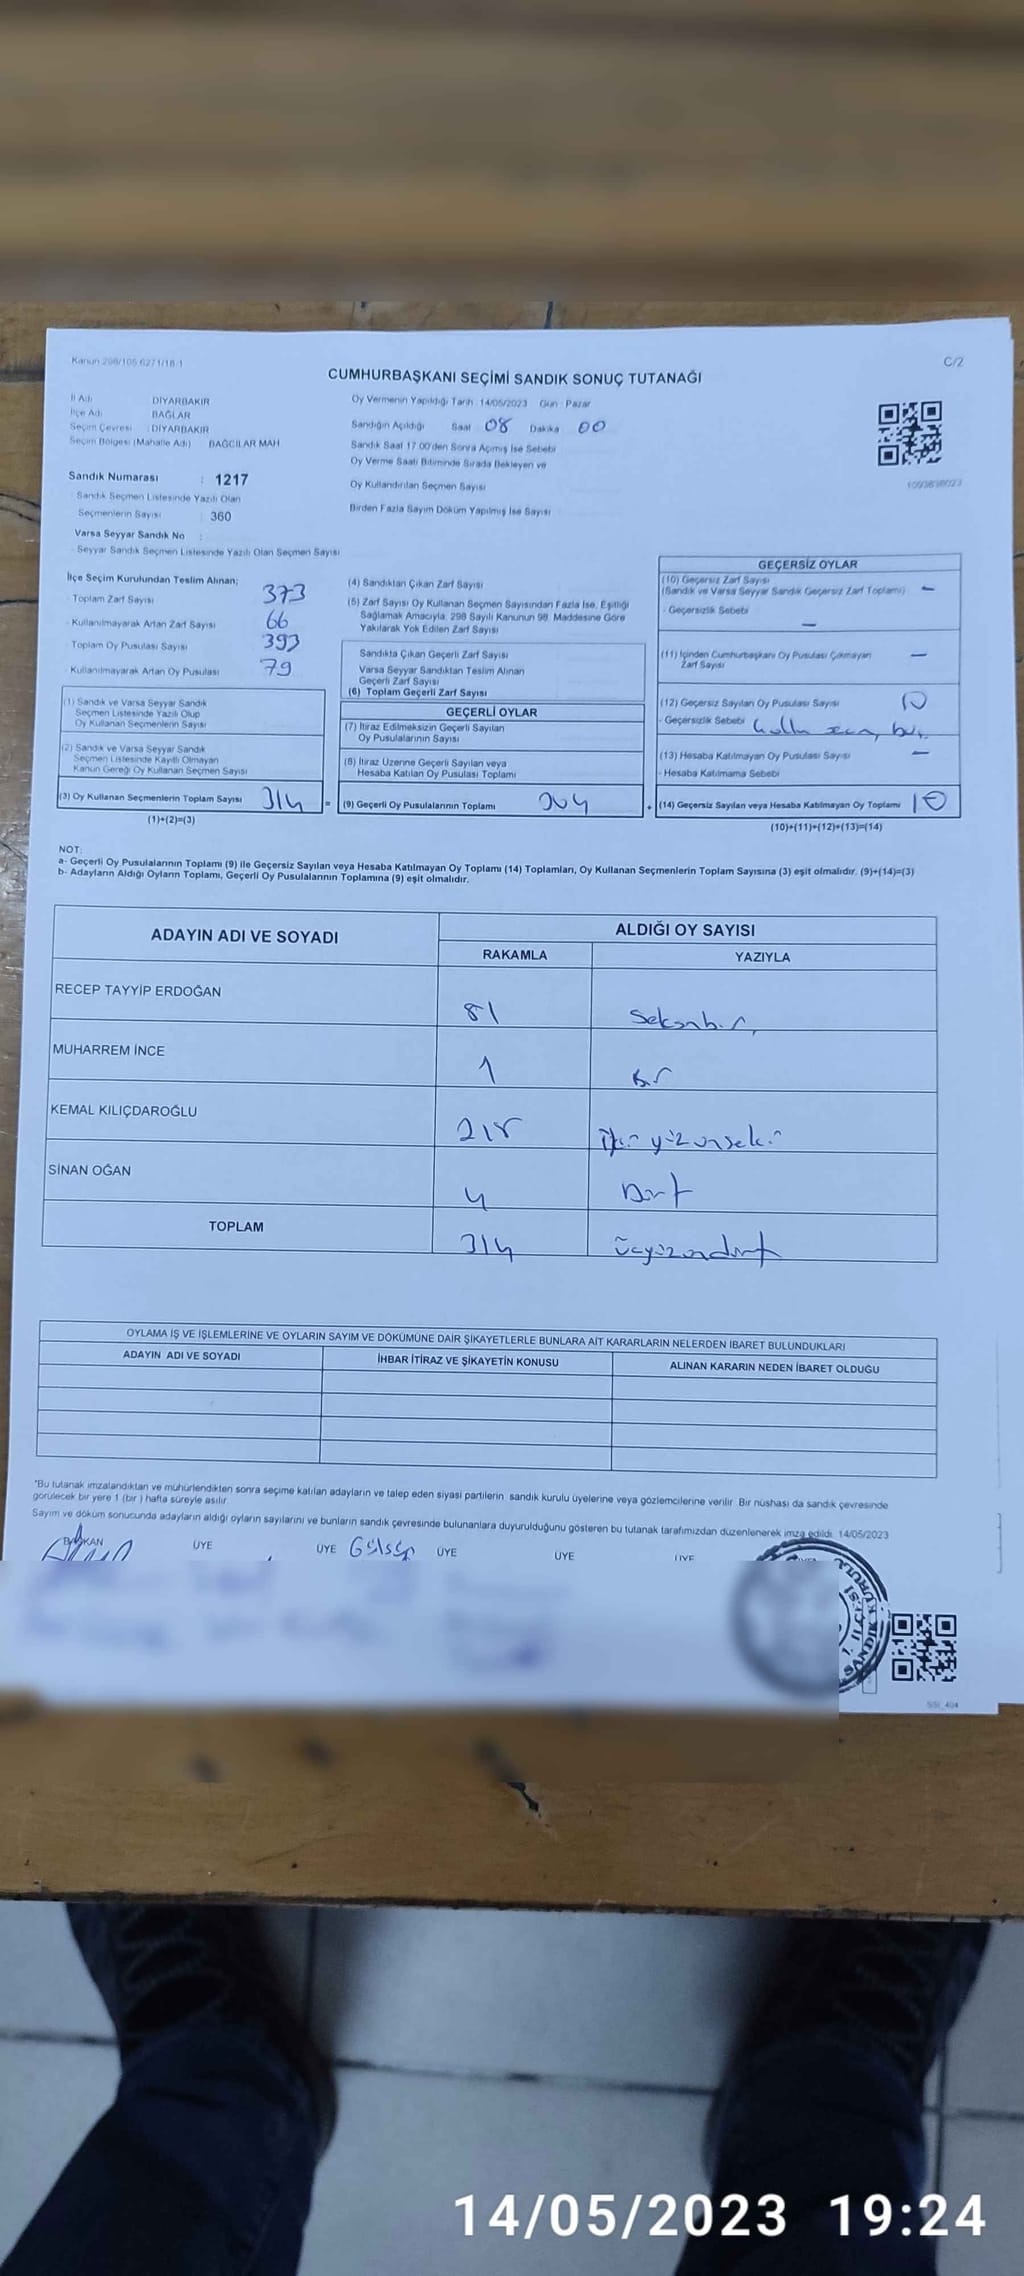 Kanun 298/105 6271/18-1
C/2
CUMHURBAŞKANI SEÇİMİ SANDIK SONUÇ TUTANAĞI
İl Adı DİYARBAKIR
İlçe Adı BAĞLAR
Seçim Çevresi : DİYARBAKIR
Seçim Bölgesi (Mahalle Adı) BAĞCILAR MAH
Oy Vermenin Yapıldığı Tarih 14/05/2023 Gün Pazar
Sandığın Açıldığı Saat 08 Dakika 00
Sandık Saat 17.00'den Sonra Açılmış İse Sebebi
Oy Verme Saati Bitiminde Sırada Bekleyen ve
Oy Kullandırılan Seçmen Sayısı
Birden Fazla Sayım Döküm Yapılmış İse Sayısı
Sandık Numarası : 1217
Sandık Seçmen Listesinde Yazılı Olan
Seçmenlerin Sayısı : 360
Varsa Seyyar Sandık No :
- Seyyar Sandık Seçmen Listesinde Yazılı Olan Seçmen Sayısı
İlçe Seçim Kurulundan Teslim Alınan;
- Toplam Zarf Sayısı 373
- Kullanılmayarak Artan Zarf Sayısı 66
- Toplam Oy Pusulası Sayısı 393
- Kullanılmayarak Artan Oy Pusulası 79
(1) Sandık ve Varsa Seyyar Sandık
Seçmen Listesinde Yazılı Olup
Oy Kullanan Seçmenlerin Sayısı
(2) Sandık ve Varsa Seyyar Sandık
Seçmen Listesinde Kayıtlı Olmayan
Kanun Gereği Oy Kullanan Seçmen Sayısı
(3) Oy Kullanan Seçmenlerin Toplam Sayısı 314
(1)+(2)=(3)
(4) Sandıktan Çıkan Zarf Sayısı
(5) Zarf Sayısı Oy Kullanan Seçmen Sayısından Fazla İse, Eşitliği
Sağlamak Amacıyla, 298 Sayılı Kanunun 98. Maddesine Göre
Yakılarak Yok Edilen Zarf Sayısı
Sandıkta Çıkan Geçerli Zarf Sayısı
Varsa Seyyar Sandıktan Teslim Alınan
Geçerli Zarf Sayısı
(6) Toplam Geçerli Zarf Sayısı
GEÇERLİ OYLAR
(7) İtiraz Edilmeksizin Geçerli Sayılan
Oy Pusulalarının Sayısı
(8) İtiraz Üzerine Geçerli Sayılan veya
Hesaba Katılan Oy Pusulası Toplamı
= (9) Geçerli Oy Pusulalarının Toplamı 304
GEÇERSİZ OYLAR
(10) Geçersiz Zarf Sayısı
(Sandık ve Varsa Seyyar Sandık Geçersiz Zarf Toplamı) -
- Geçersizlik Sebebi -
(11) İçinden Cumhurbaşkanı Oy Pusulası Çıkmayan
Zarf Sayısı -
(12) Geçersiz Sayılan Oy Pusulası Sayısı 10
- Geçersizlik Sebebi
(13) Hesaba Katılmayan Oy Pusulası Sayısı -
- Hesaba Katılmama Sebebi
+ (14) Geçersiz Sayılan veya Hesaba Katılmayan Oy Toplamı 10
(10)+(11)+(12)+(13)=(14)
NOT:
a- Geçerli Oy Pusulalarının Toplamı (9) ile Geçersiz Sayılan veya Hesaba Katılmayan Oy Toplamı (14) Toplamları, Oy Kullanan Seçmenlerin Toplam Sayısına (3) eşit olmalıdır. (9)+(14)=(3)
b- Adayların Aldığı Oyların Toplamı, Geçerli Oy Pusulalarının Toplamına (9) eşit olmalıdır.
ADAYIN ADI VE SOYADI
ALDIĞI OY SAYISI
RAKAMLA YAZIYLA
RECEP TAYYİP ERDOĞAN 81 Seksenbir
MUHARREM İNCE 1 Bir
KEMAL KILIÇDAROĞLU 218 İki yüz onseki
SİNAN OĞAN 4 Dört
TOPLAM 314 üçyüzondört
OYLAMA İŞ VE İŞLEMLERİNE VE OYLARIN SAYIM VE DÖKÜMÜNE DAİR ŞİKAYETLERLE BUNLARA AİT KARARLARIN NELERDEN İBARET BULUNDUKLARI
ADAYIN ADI VE SOYADI İHBAR İTİRAZ VE ŞİKAYETİN KONUSU ALINAN KARARIN NEDEN İBARET OLDUĞU
*Bu tutanak imzalandıktan ve mühürlendikten sonra seçime katılan adayların ve talep eden siyasi partilerin sandık kurulu üyelerine veya gözlemcilerine verilir. Bir nüshası da sandık çevresinde
görülecek bir yere 1 (bir) hafta süreyle asılır.
Sayım ve döküm sonucunda adayların aldığı oyların sayılarını ve bunların sandık çevresinde bulunanlara duyurulduğunu gösteren bu tutanak tarafımızdan düzenlenerek imza edildi. 14/05/2023
BAŞKAN ÜYE ÜYE ÜYE ÜYE ÜYE
İLÇESİ
SANDIK KURULU
14/05/2023 19:24